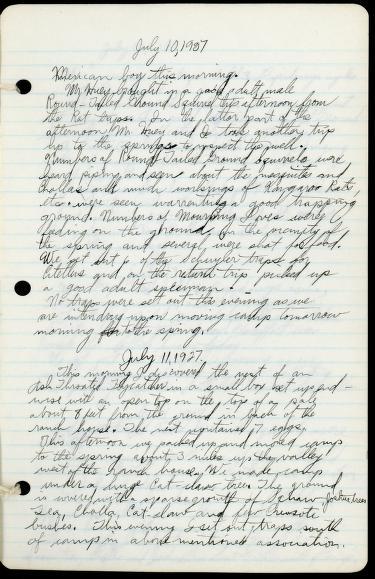 July 10, 1927
Mexican boy this morning.
Mr. Huey brought in a good adult male
Round-Tailed Ground Squirrel this afternoon from
the Rat traps. On the latter part of the
afternoon Mr. Huey and I took another trip
up to the springs to inspect the well.
Numbers of Round Tailed Ground Squirrels were
heard piping and seen about the mesquites and
Chollas and much workings of Kangaroo Rats
etc. were seen warranting a good trapping
ground. Numbers of Mourning Doves were
feeding on the ground in the proximity of
the spring and several were shot for food.
We set out 6 of the Schuyler traps for
Citellus and on the return trip picked up
a good adult specimen.
No traps were set out this evening as we
are intending upon moving camp tomorrow
morning to the spring.
July 11, 1927.
This morning I discovered the nest of an
Ash Throated Flycatcher in a small box set up end-
wise with an open top on the top of a pole
about 8 feet from the ground in back of the
ranch house. The nest contained 7 eggs.
This afternoon we packed up and moved camp
to the spring about 3 miles up the valley
west of the ranch house. We made camp
under a huge Cat-claw tree. The ground
is covered with a sparse growth of Ocha Joshua trees
Sea, Cholla, Cat-claw and few Creosote
bushes. This evening I set out traps south
of camp in above mentioned association.